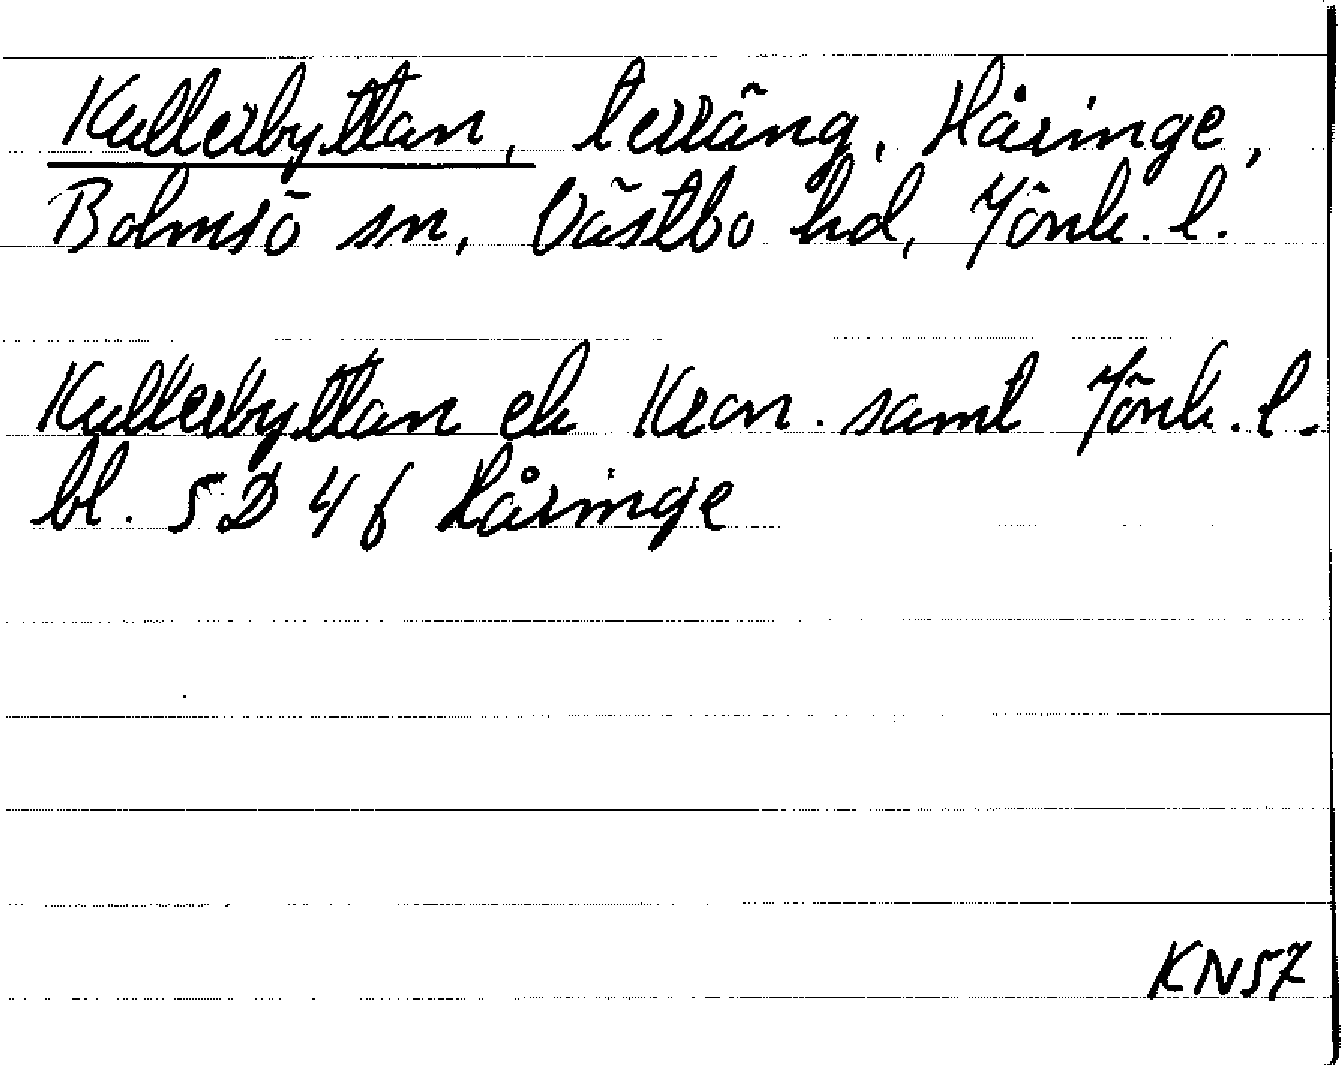 Kullerbyttan, terräng, Håringe,
Bolmsö sn, Västbo hd, Jönk. l.
Kullerbyttan ek Kron. samt Jönk. l.
bl. 5D 4f Håringe
KN57